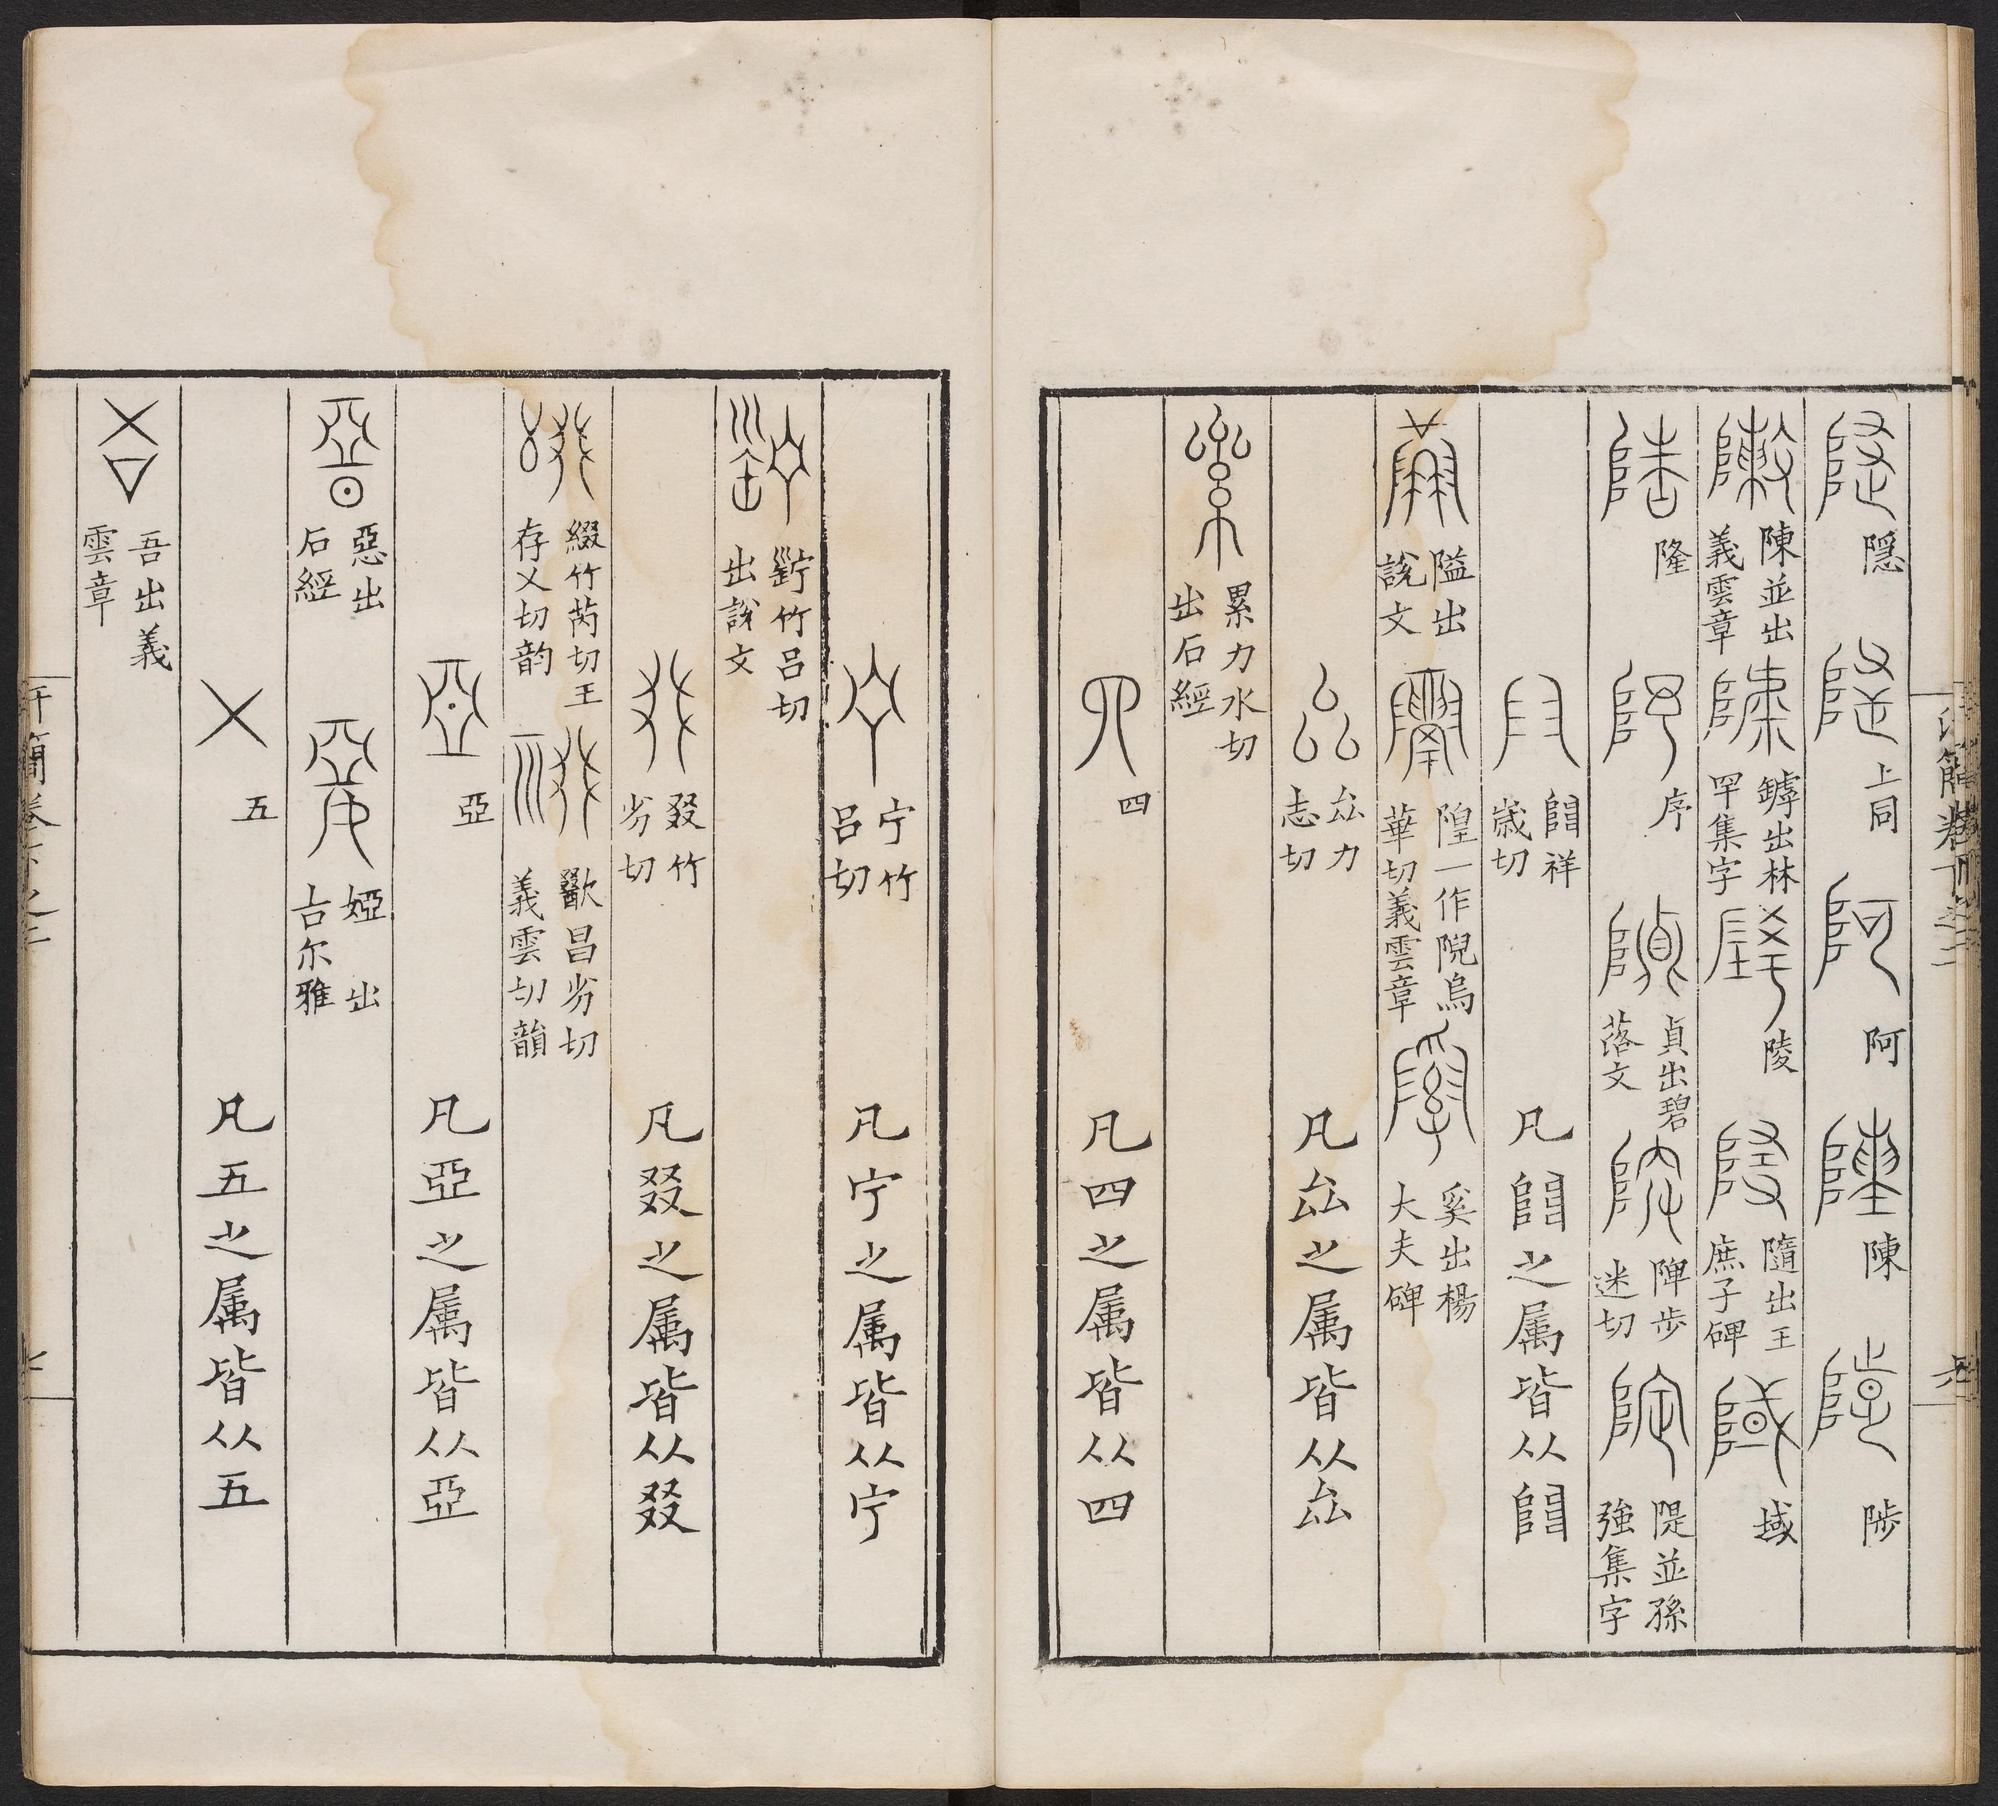 隱 上同 阿 陳 陟
陳並出義雲章 罅出林罕集字 陵 隨出王庶子碑 域
隆 序 貞出碧落文 陴步迷切 隄並孫強集字
𨺅祥歲切 凡𨺅之属皆从𨺅
隘出說文 隍一作隉烏華切義雲章 奚出楊大夫碑
厽力志切 凡厽之属皆从厽
累力水切出石經
四 凡四之属皆从四
宁竹呂切 凡宁之属皆从宁
竹呂切出說文
叕竹劣切 凡叕之属皆从叕
綴竹芮切王存乂切韵 歠昌劣切義雲切韻
亞 凡亞之属皆从亞
惡出石經 婭出古尔雅
五 凡五之属皆从五
吾出義雲章
汗簡卷下之二